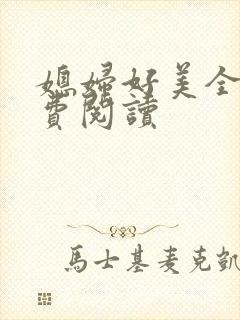 媳婦好美全
費閱讀
馬士基麦克凱